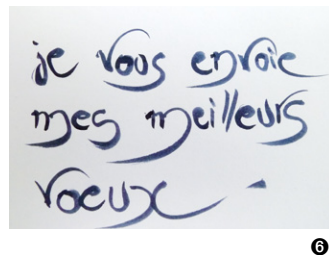 je vous envoie
mes meilleurs
voeux
❻